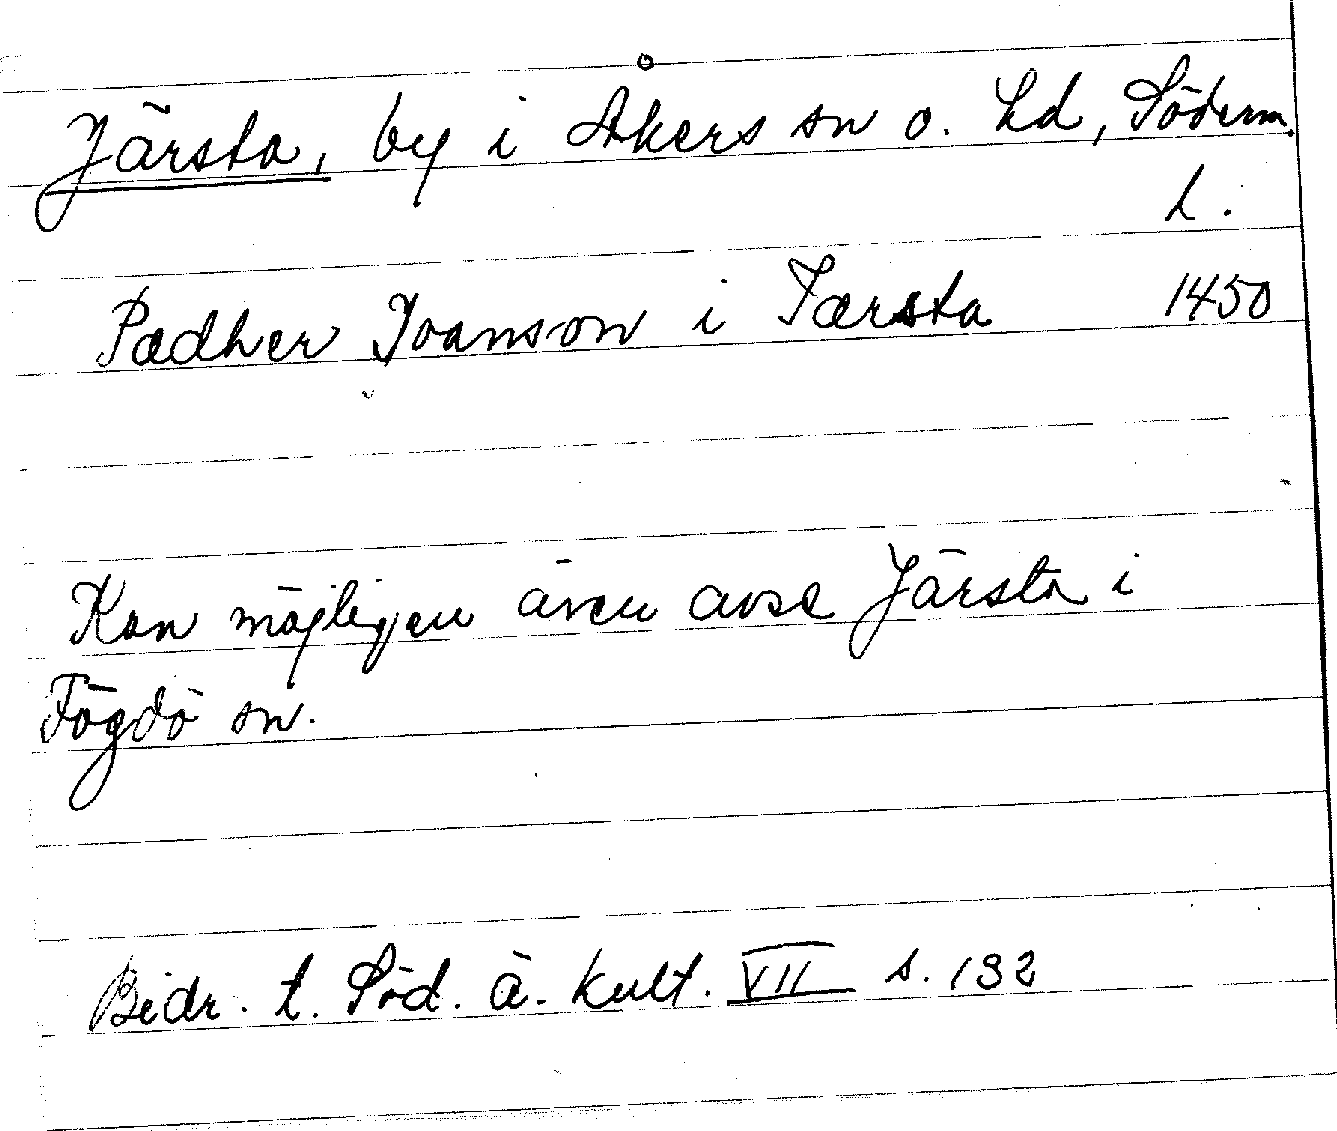 Järsta, by i Åkers sn o. hd, Söderm.
l.
Pædher Joanson i Iærsta 1450
Kan möjligen även avse Järsta i
Fogdö sn.
Bidr. t. Söd. ä. kult. VII s. 132